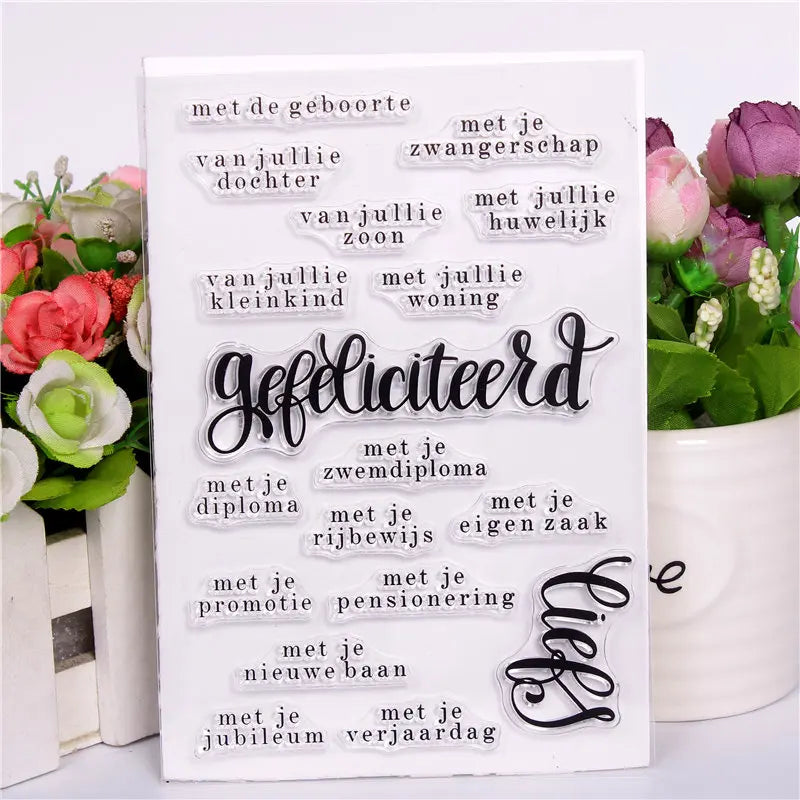 met de geboorte
met je
zwangerschap
van jullie
dochter
met jullie
huwelijk
van jullie
zoon
van jullie
kleinkind
met jullie
woning
gefeliciteerd
met je
zwemdiploma
met je
diploma
met je
eigen zaak
met je
rijbewijs
met je
promotie
met je
pensionering
liefs
met je
nieuwe baan
met je
jubileum
met je
verjaardag